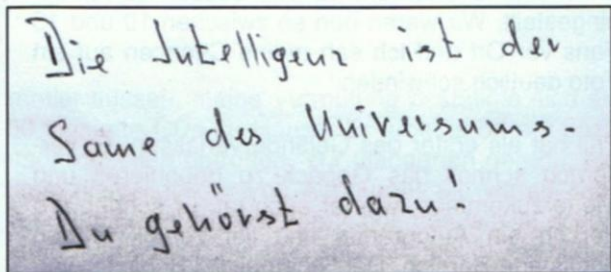 Die Intelligenz ist der
Same des Universums.
Du gehörst dazu!